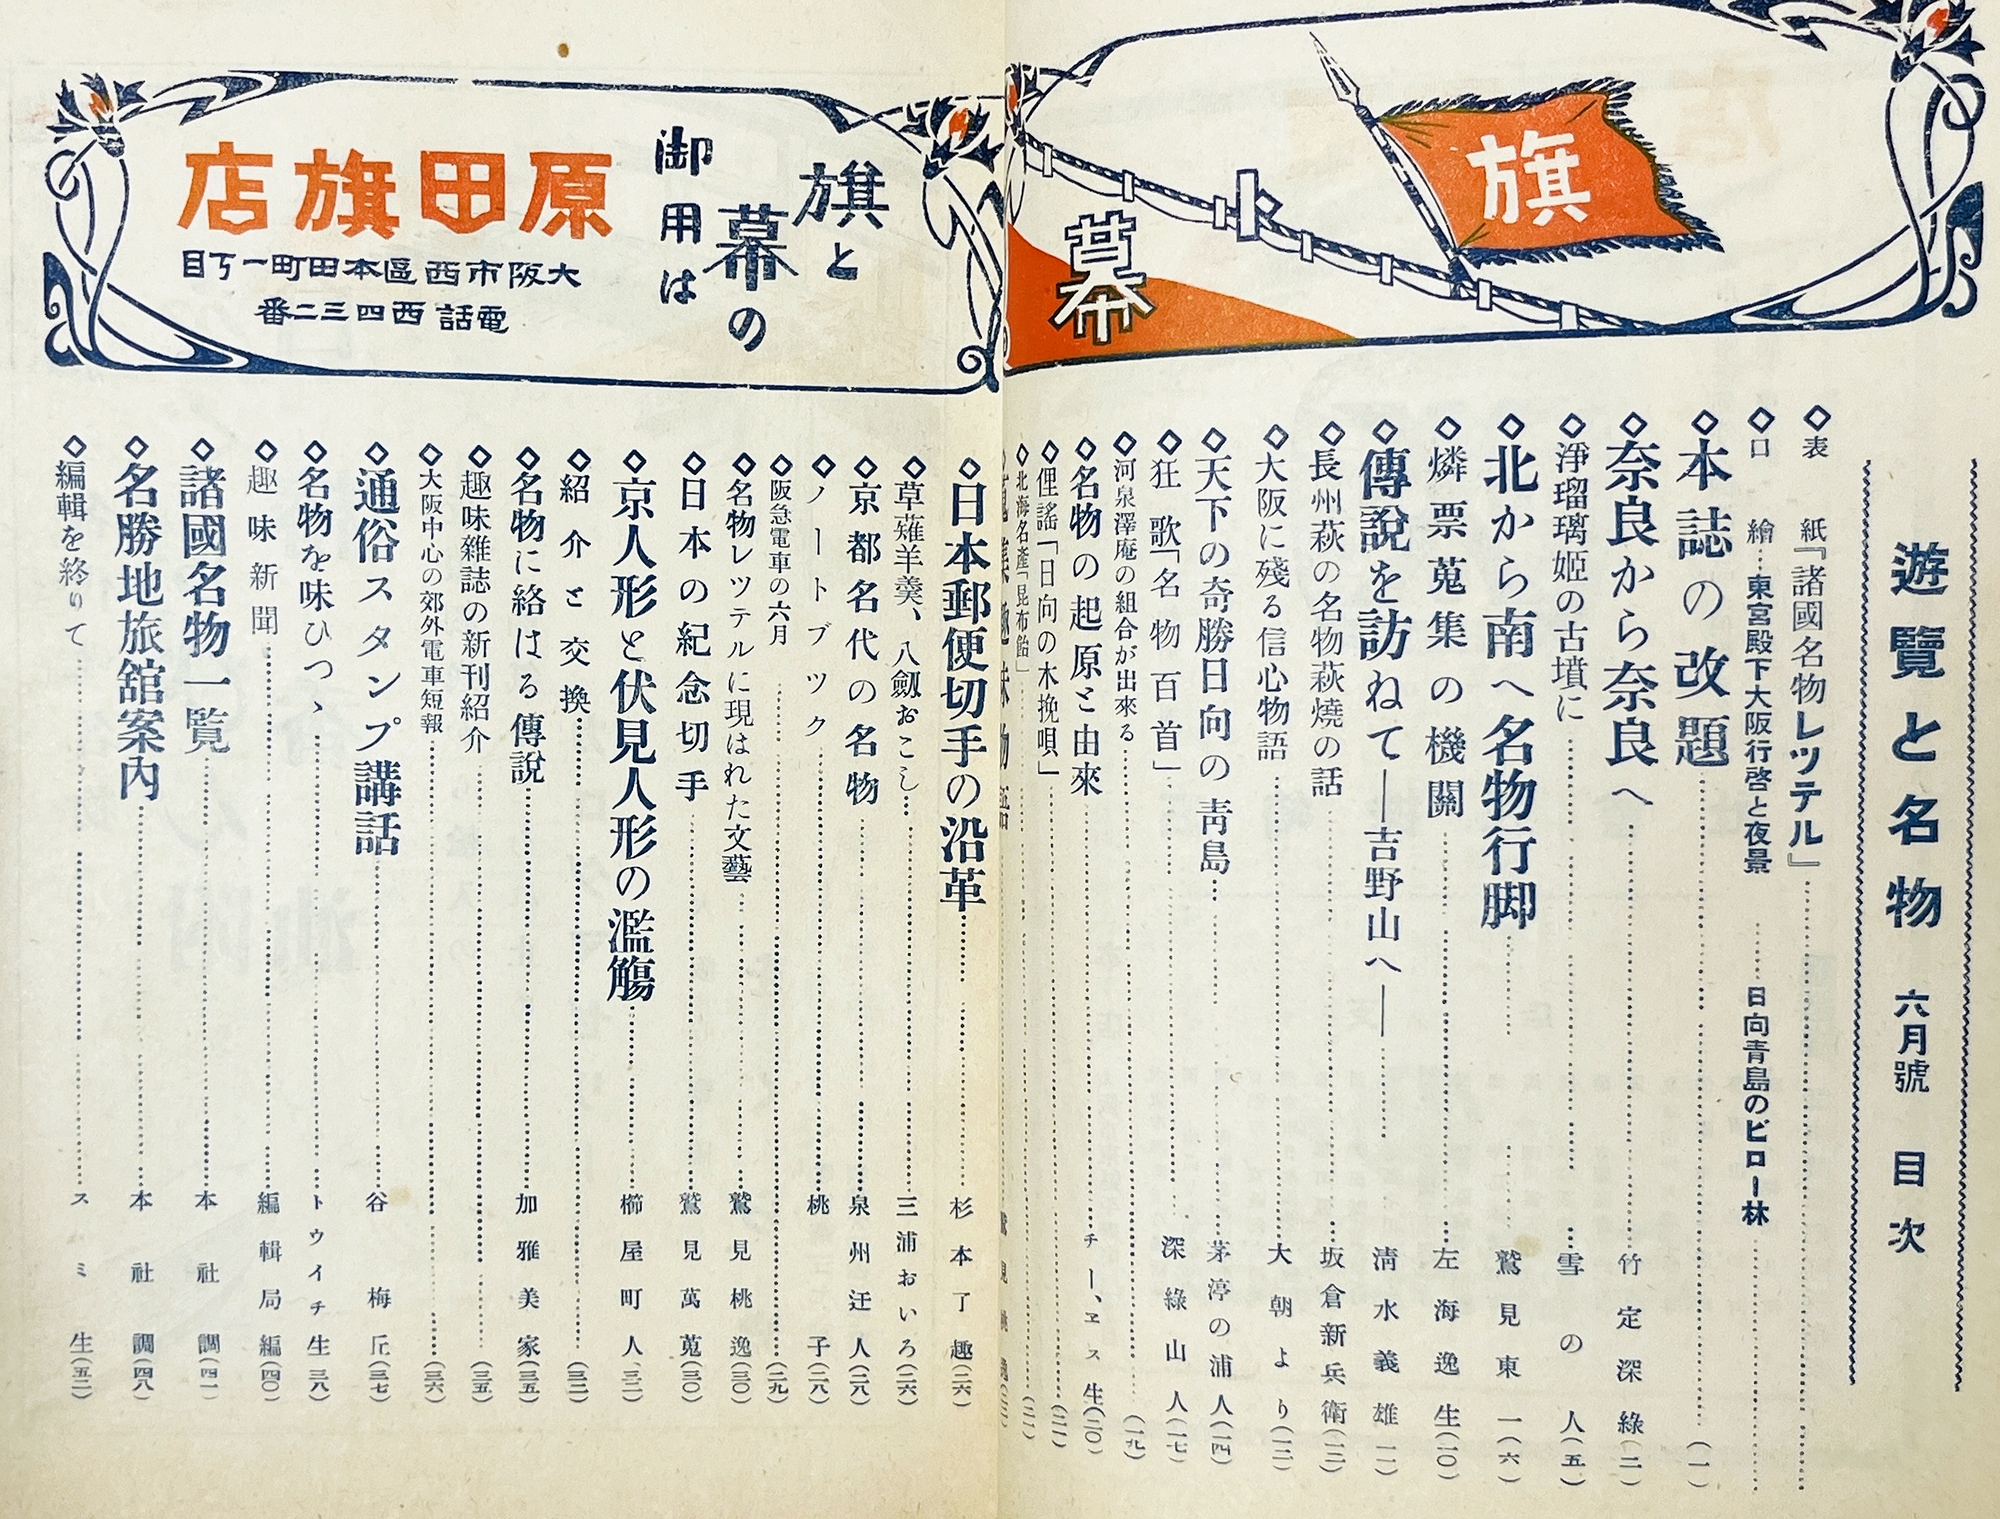 旗
ト
幕
旗と
幕の
御用は
原田旗店
大阪市西區本田町一丁目
電話西四三二番
遊覽と名物 六月號 目次
◇表紙『諸國名物レッテル』
◇口繪…東宮殿下大阪行啓と夜景 日向青島のビロー林
◇本誌の改題(一)
◇奈良から奈良へ 竹定深綠(二)
◇淨瑠璃姬の古墳に 雪の人(五)
◇北から南へ名物行脚 鷲見東一(六)
◇燐票蒐集の機關 左海逸生(一〇)
◇傳說を訪ねて―吉野山へ― 淸水義雄(一一)
◇長州萩の名物萩燒の話 坂倉新兵衛(一二)
◇大阪に殘る信心物語 大朝より(一二)
◇天下の奇勝日向の靑島 茅渟の浦人(一四)
◇狂歌「名物百首」 深綠山人(一七)
◇河泉澤庵の組合が出來る(一九)
◇名物の起原と由來 チー、ヱス生(二〇)
◇俚謠「日向の木挽唄」(二一)
◇北海名產「昆布飴」(二一)
◇日本郵便切手の沿革 杉本了趣(二六)
◇草薙羊羹、八劔おこし 三浦おいろ(二六)
◇京都名代の名物 泉州迂人(二八)
◇ノートブック 桃子(二八)
◇阪急電車の六月(二九)
◇名物レツテルに現はれた文藝 鷲見桃逸(三〇)
◇日本の紀念切手 鷲見萬蒐(三〇)
◇京人形と伏見人形の濫觴 櫛屋町人(三二)
◇紹介と交換(三二)
◇名物に絡はる傳說 加雅美家(三五)
◇趣味雜誌の新刊紹介(三五)
◇大阪中心の郊外電車短報(三六)
◇通俗スタンプ講話 谷梅丘(三七)
◇名物を味ひつゝ トウイチ生(三八)
◇趣味新聞 編輯局編(四〇)
◇諸國名物一覽 本社調(四一)
◇名勝地旅舘案內 本社調(四八)
◇編輯を終りて スミ生(五二)